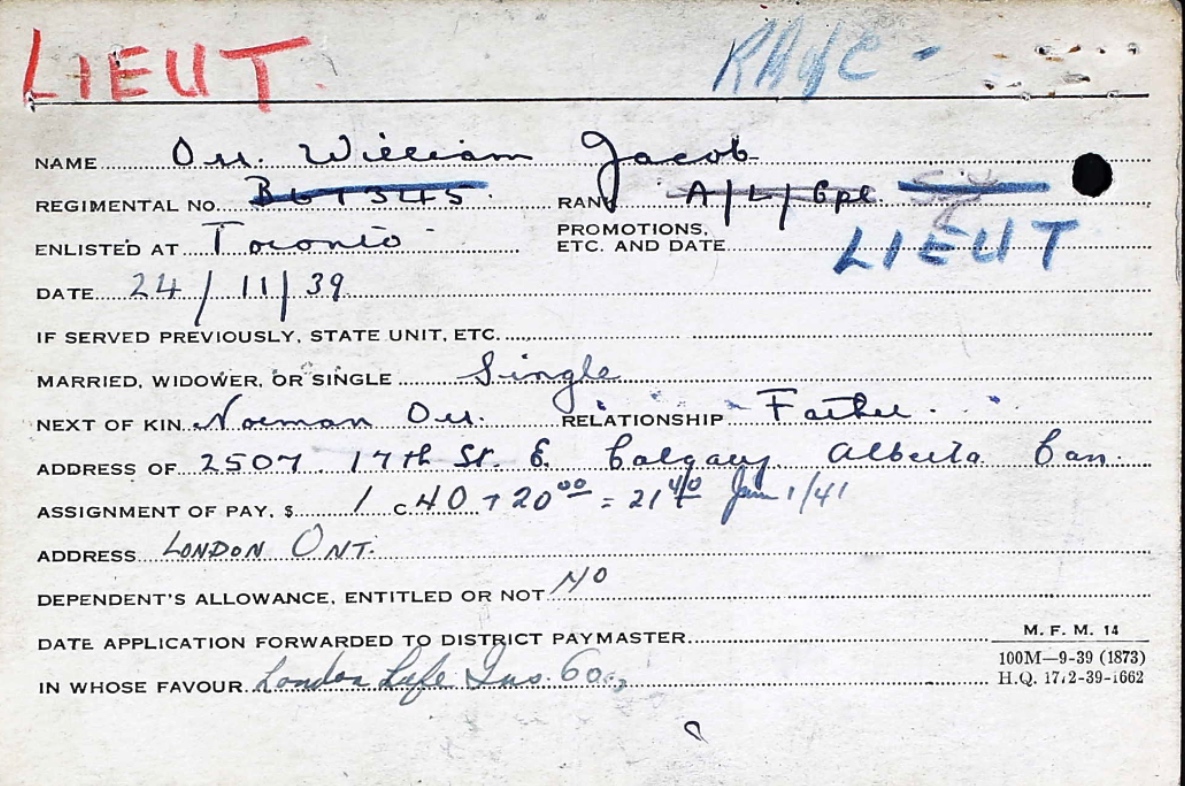 LIEUT.
NAME Orr. William Jacob
REGIMENTAL NO. RANK A/L/Cpl
ENLISTED AT Toronto
PROMOTIONS,
ETC. AND DATE LIEUT
DATE 24/11/39
IF SERVED PREVIOUSLY, STATE UNIT, ETC.
MARRIED, WIDOWER, OR SINGLE Single
NEXT OF KIN Norman Orr. RELATIONSHIP Father.
ADDRESS OF 2507 17th St. E. Calgary. Alberta. Can.
ASSIGNMENT OF PAY, $ 1 C 40 + 20 00 = 21 40 Jan 1/41
ADDRESS LONDON ONT.
DEPENDENT'S ALLOWANCE, ENTITLED OR NOT NO
DATE APPLICATION FORWARDED TO DISTRICT PAYMASTER
IN WHOSE FAVOUR London Life Ins. Co.,
M. F. M. 14
100M—9-39 (1873)
H.Q. 1772-39-1662